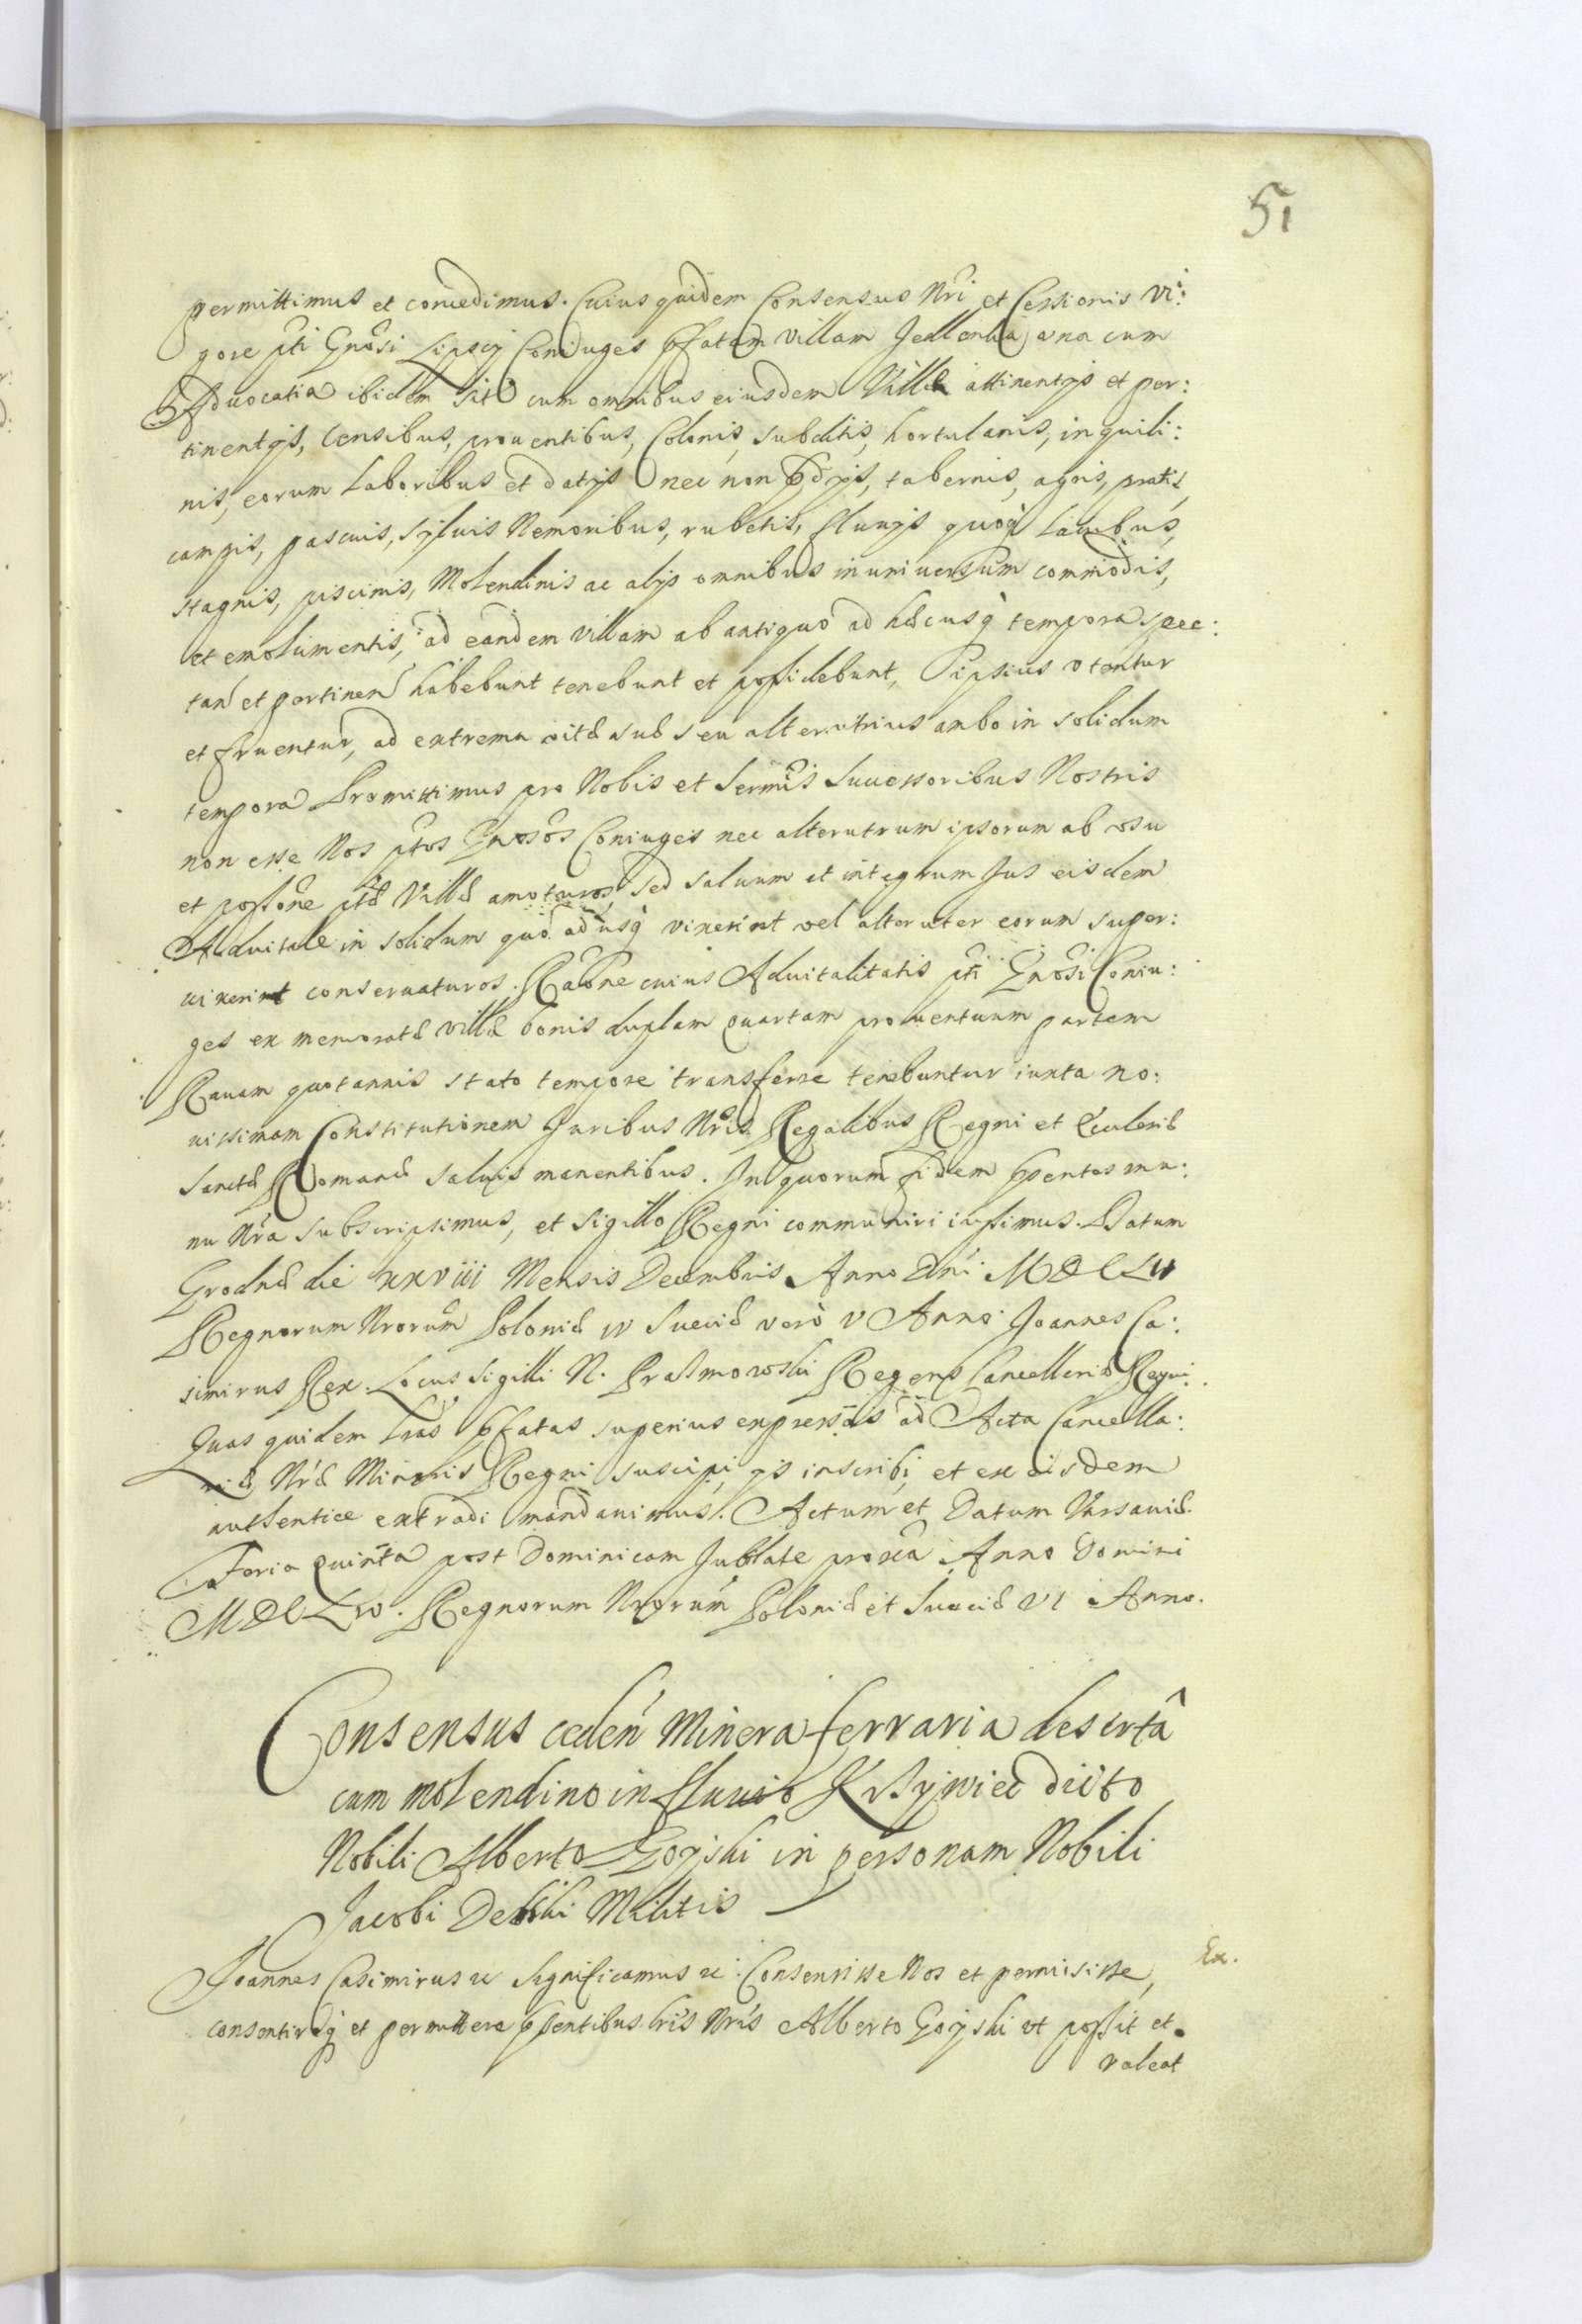 51
permittimus et concedimus. Cuius quidem Consensus Nri et Cessionis vi:
gore pti Gnosi Lipscy Coniuges pfatam villam Jellenia una cum
Aduocatia ibidem sita cum omnibus eiusdem Villæ attinentijs et per:
tinentijs, Censibus, prouentibus, Colonis, subditis, hortulanis, inquili:
nis, eorum Laboribus et datijs nec non pdijs, tabernis, agris, pratis,
campis, pascuis, syluis Nemoribus, rubetis, fluuijs quoq lacubus,
stagnis, piscinis, Molendinis ac alijs omnibus in uniuersum commodis,
et emolumentis, ad eandem villam ab antiquo ad hæcusq tempora spec:
tan et pertinen habebunt tenebunt et possidebunt, ipsius utentur
et fruentur, ad extrema vitæ suæ seu alterutrius ambo in solidum
tempora Promittimus pro Nobis et Sermis Successoribus Nostris
non esse Nos ptos Gnosos Coniuges nec alterutrum ipsorum ab usu
et possone ptæ Villæ amoturos, sed saluum et integrum Jus eisdem
Aduitale in solidum quo adusq vixerint vel alteruter eorum super:
uixerint conseruaturos. Raone cuius Aduitalitatis pti Gnosi Coniu:
ges ex memoratæ villæ bonis duplam quartam prouentuum partem
Rauam quotannis stato tempore transferre tenebuntur iuxta no:
uissimam Constitutionem Juribus Nris Regalibus Regni et Ecclesiæ
Sanctæ Romanæ saluis manentibus. In quorum fidem psentes ma:
nu Nra subscripsimus, et Sigillo Regni communiri iussimus. Datum
Grodnæ die xxviii Mensis Decembris Anno Dni MDCLII
Regnorum Nrorum Poloniæ IV Sueciæ verò V Anno Joannes Ca:
simirus Rex. Locus Sigilli N. Prasmowski Regens Cancellariæ Regni.
Quas quidem Lras pfatas superius expressas ad Acta Cancella:
riæ Nræ Minoris Regni suscipi, ijs inscribi, et ex eisdem
authentice extradi mandauimus. Actum et Datum Varsauiæ
Feria Quinta post Dominicam Jubilate proxa Anno Domini
Regnorum Nrorum Poloniæ et Sueciæ VI Anno.
Consensus ceden Minera ferraria desertâ
cum molendino in fluuio Krzywiec dicto
Nobili Alberto Goyski in personam Nobili
Jacobi Militis
Joannes Casimirus &c Significamus &c. Consensisse Nos et permisisse,
Ex.
consentireq et permittere psentibus lris Nris Alberto Goyski ut possit et
valeat